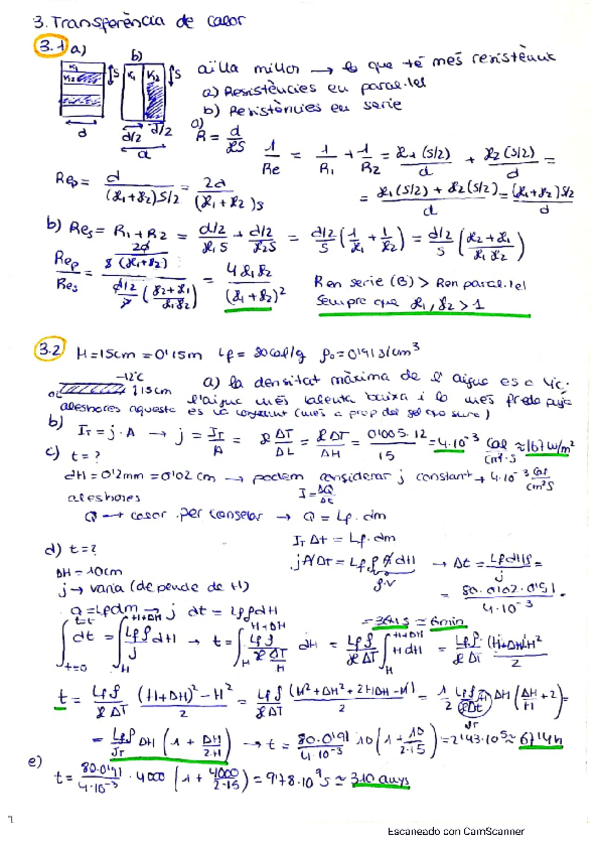 3. Transferència de calor
3.1 a)
b)
K1
K2
K1 K2
S
S
d
d/2 d/2
d
aïlla millor → lo que té més resistència
a) Resistències en paral·lel
b) Resistències en serie
a)
R = d/kS
1/Re = 1/R1 + 1/R2 = k1(S/2)/d + k2(S/2)/d =
= k1(S/2) + k2(S/2)/d = (k1+k2)S/2/d
Rep = d/(k1+k2)S/2 = 2d/(k1+k2)S
b) Res = R1 + R2 = d/2/k1S + d/2/k2S = d/2/S (1/k1 + 1/k2) = d/2/S (k2+k1/k1k2)
Rep/Res = 2d/S(k1+k2) / d/2/S (k2+k1/k1k2) = 4k1k2/(k1+k2)²
R en serie (B) > R en paral·lel
Sempre que k1, k2 > 1
3.2 H = 15cm = 0'15m Lf = 80 cal/g ρo = 0'91 g/cm³
-12ºC
0ºC
15cm
a) la densitat màxima de l'aigua es a 4ºC.
l'aigua més calenta baixa i la més freda puja
aleshores aquesta es va congelant (més a prop del gel que sura)
b) IT = j·A → j = IT/A = k ΔT/ΔL = k ΔT/ΔH = 0'005·12/15 = 4·10⁻³ cal/cm²·s ≃ 167 W/m²
c) t = ?
dH = 0'2mm = 0'02 cm → podem considerar j constant → 4·10⁻³ cal/cm²s
aleshores
I = ΔQ/Δt
Q → calor per congelar → Q = Lf·dm
IT Δt = Lf·dm
d) t = ?
jAΔt = Lf ρ A dH
ρ·V
→ Δt = Lf dH ρ/j =
= 80·0'02·0'91/4·10⁻³ =
= 364 s ≃ 6 min
ΔH = 10cm
j → varia (depende de H)
Q = Lf dm → j dt = Lf ρ dH
∫t=0 t=t dt = ∫H H+ΔH Lf ρ/j dH → t = ∫H H+ΔH Lf ρ/k ΔT/H dH = Lf ρ/kΔT ∫H H+ΔH H dH = Lf ρ/kΔT (H+ΔH)²-H²/2
t = Lf ρ/k ΔT (H+ΔH)² - H²/2 = Lf ρ/k ΔT (H² + ΔH² + 2HΔH - H²)/2 = 1/2 Lf ρ H/kΔt ΔH (ΔH/H + 2) =
JT
= Lf ρ/JT ΔH (1 + ΔH/2H) → t = 80·0'91/4·10⁻³ 10 (1 + 10/2·15) = 2'43·10⁵ ≃ 67'4h
e)
t = 80·0'91/4·10⁻³ · 4000 (1 + 4000/2·15) = 9'78·10⁹ s ≃ 310 anys
Escaneado con CamScanner